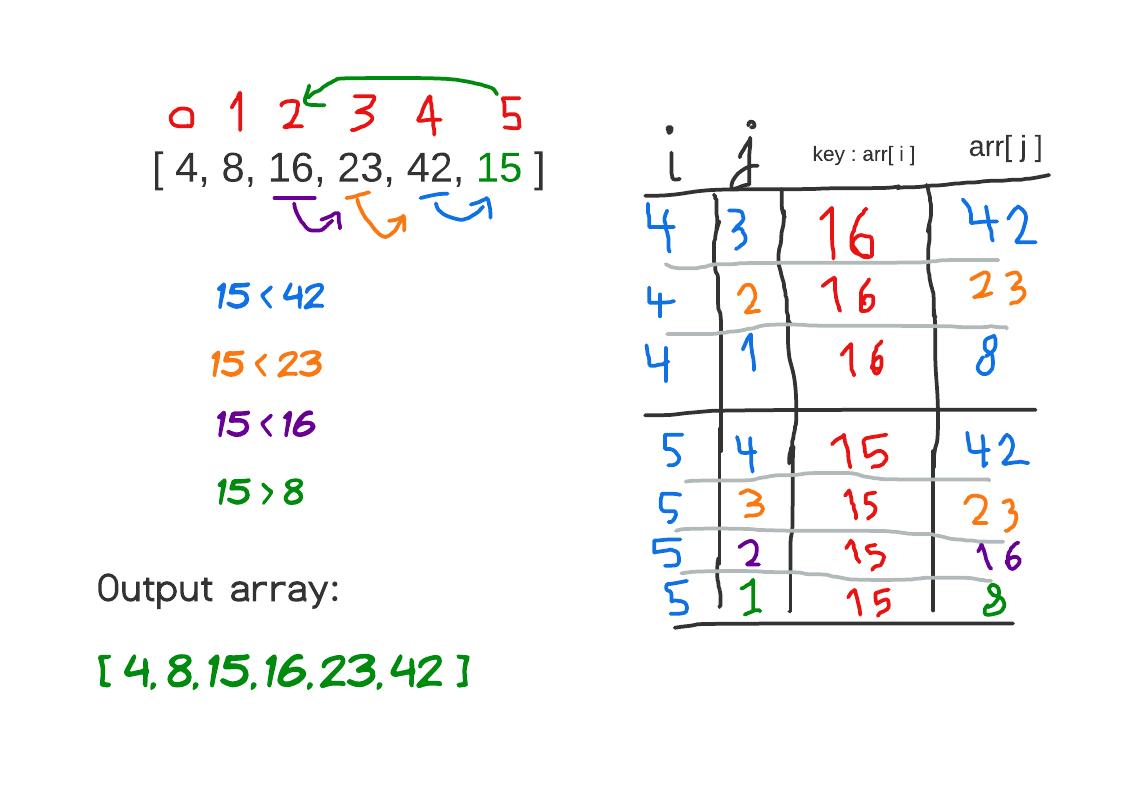 0 1 2 3 4 5
[ 4, 8, 16, 23, 42, 15 ]
15 < 42
15 < 23
15 < 16
15 > 8
Output array:
[ 4, 8, 15, 16, 23, 42 ]
i j key : arr[ i ] arr[ j ]
4 3 16 42
4 2 16 23
4 1 16 8
5 4 15 42
5 3 15 23
5 2 15 16
5 1 15 8